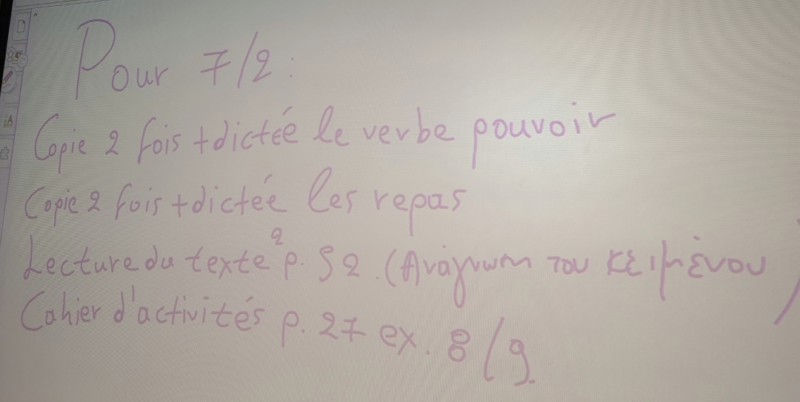 Pour 7/2:
Copie 2 fois + dictée le verbe pouvoir
Copie 2 fois + dictée les repas
Lecture du texte 2 p. 52. (Ανάγνωση του κειμένου)
Cahier d'activités p. 27 ex. 8/9.